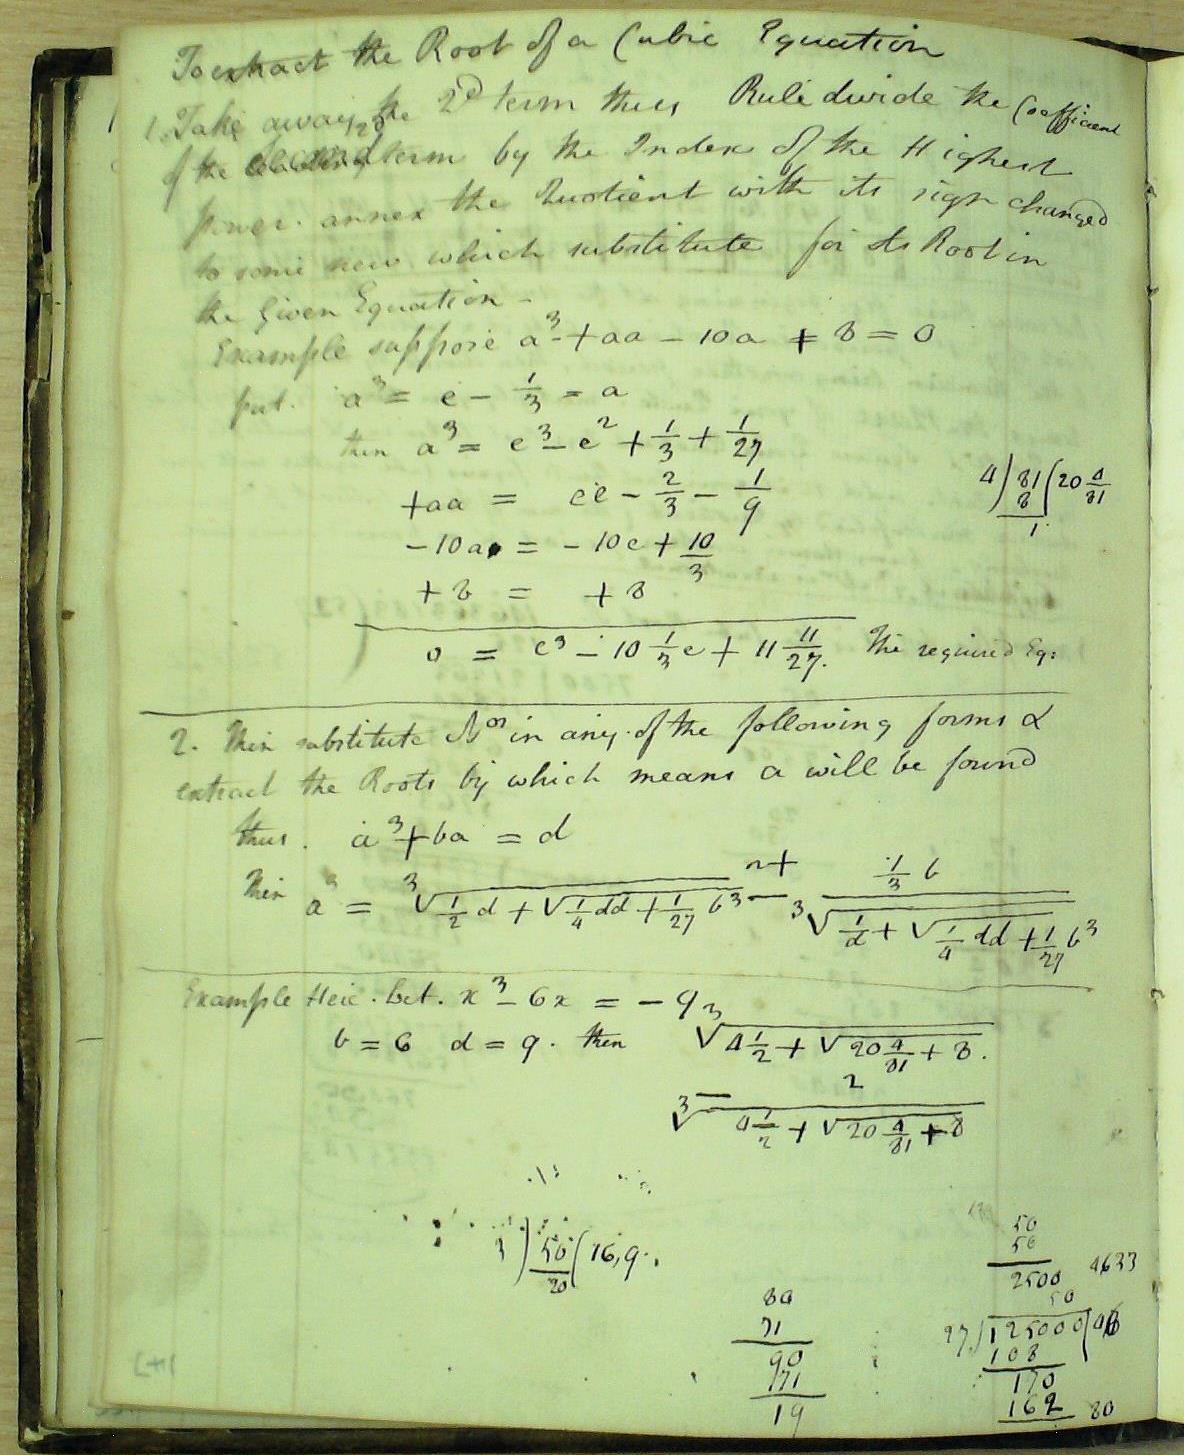 To extract the Root of a Cubic Equation
1. Take away the 2d term thus Rule divide the Coefficient
of the 2d term by the Index of the Highest
power annex the Quotient with its sign changed
to some new which substitute for its Root in
the Given Equation -
Example suppose a³ + aa - 10a + 8 = 0
put. a³ = e - 1/3 = a
then a³ = e³ - e² + 1/3 + 1/27
+aa = ee - 2/3 - 1/9
4)81(20 4/81
8
1
-10a = -10e + 10/3
+8 = +8
0 = e³ - 10 1/3 e + 11 11/27. The required Eq:
2. Then substitute Nos in any of the following forms &
extract the Roots by which means a will be found
thus. a³ + ba = d
Then a³ = ³√ 1/2 d + √ 1/4 dd + 1/27 b³ - 1/3 b
³√ 1/d + √ 1/4 dd + 1/27 b³
Example Here. Let. x³ - 6x = -9
b = 6 d = 9. then ³√ 4 1/2 + √ 20 4/81 + 8.
2
³√ 4 1/2 + √ 20 4/81 + 8
3)50(16,9.
20
50
50
2500 4633
50
27)125000(46
108
170
162 80
80
71
90
71
19